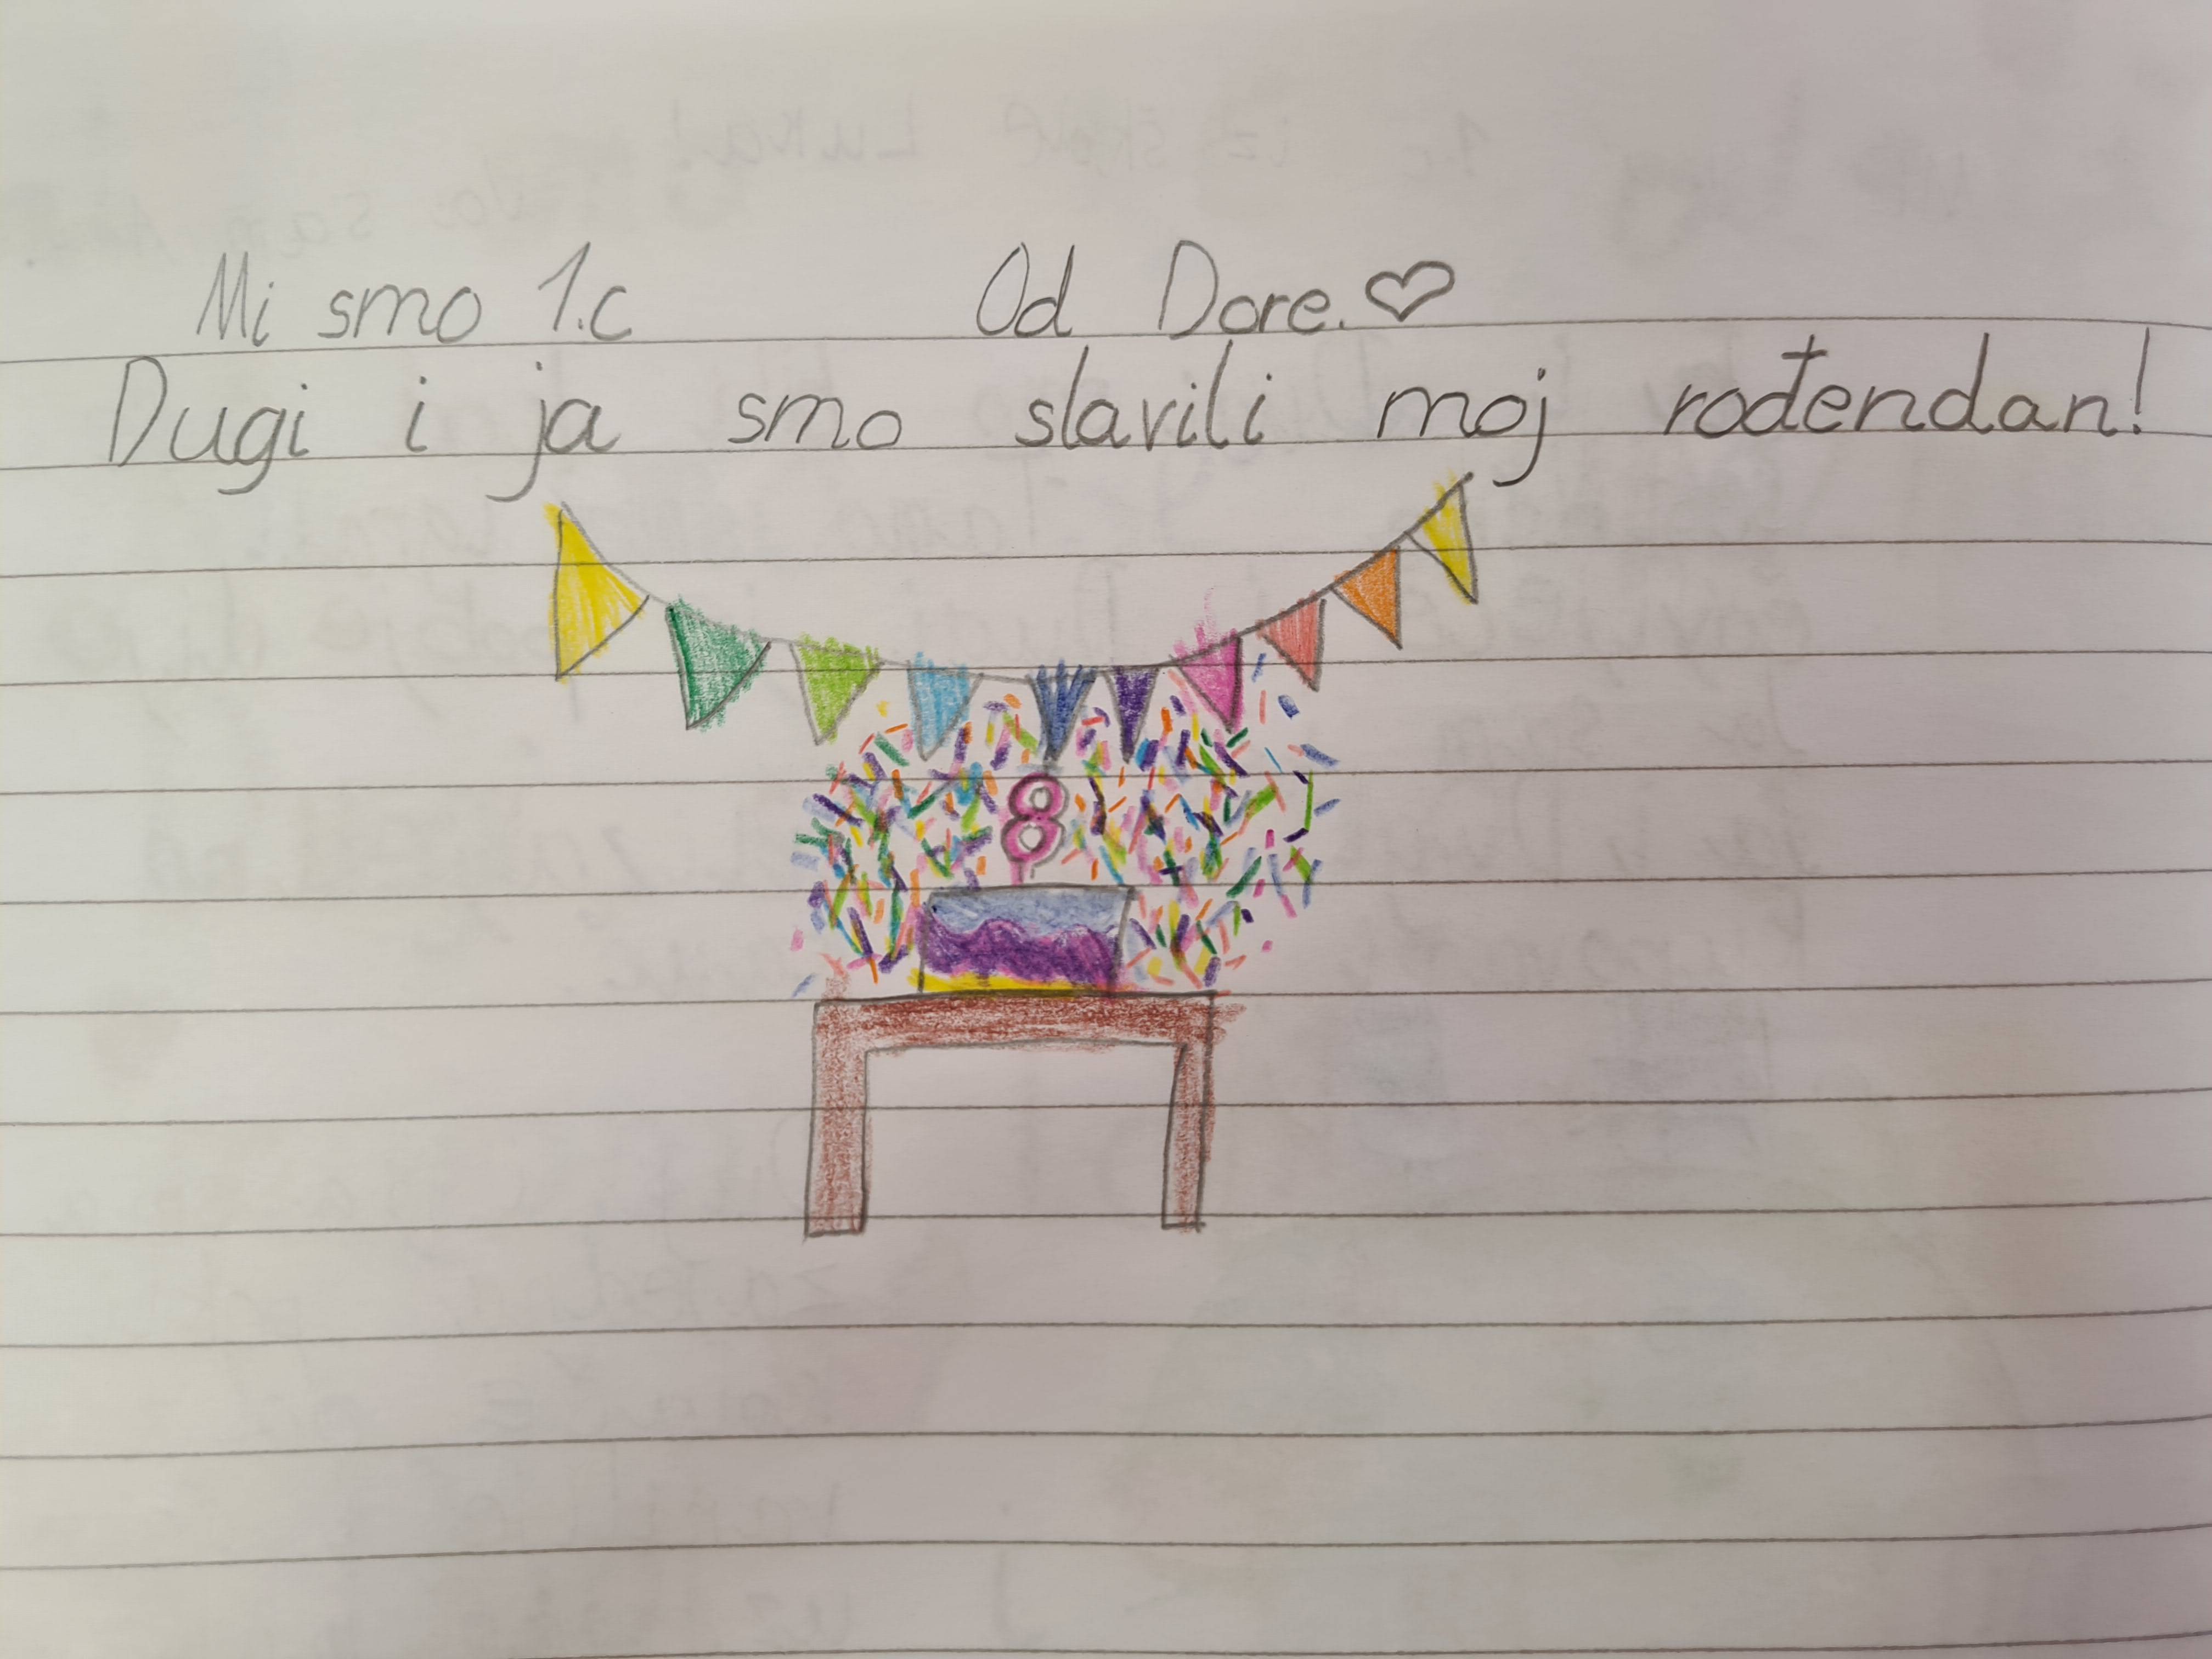 Mi smo 1.c Od Dore.♡
Dugi i ja smo slavili moj rođendan!
8